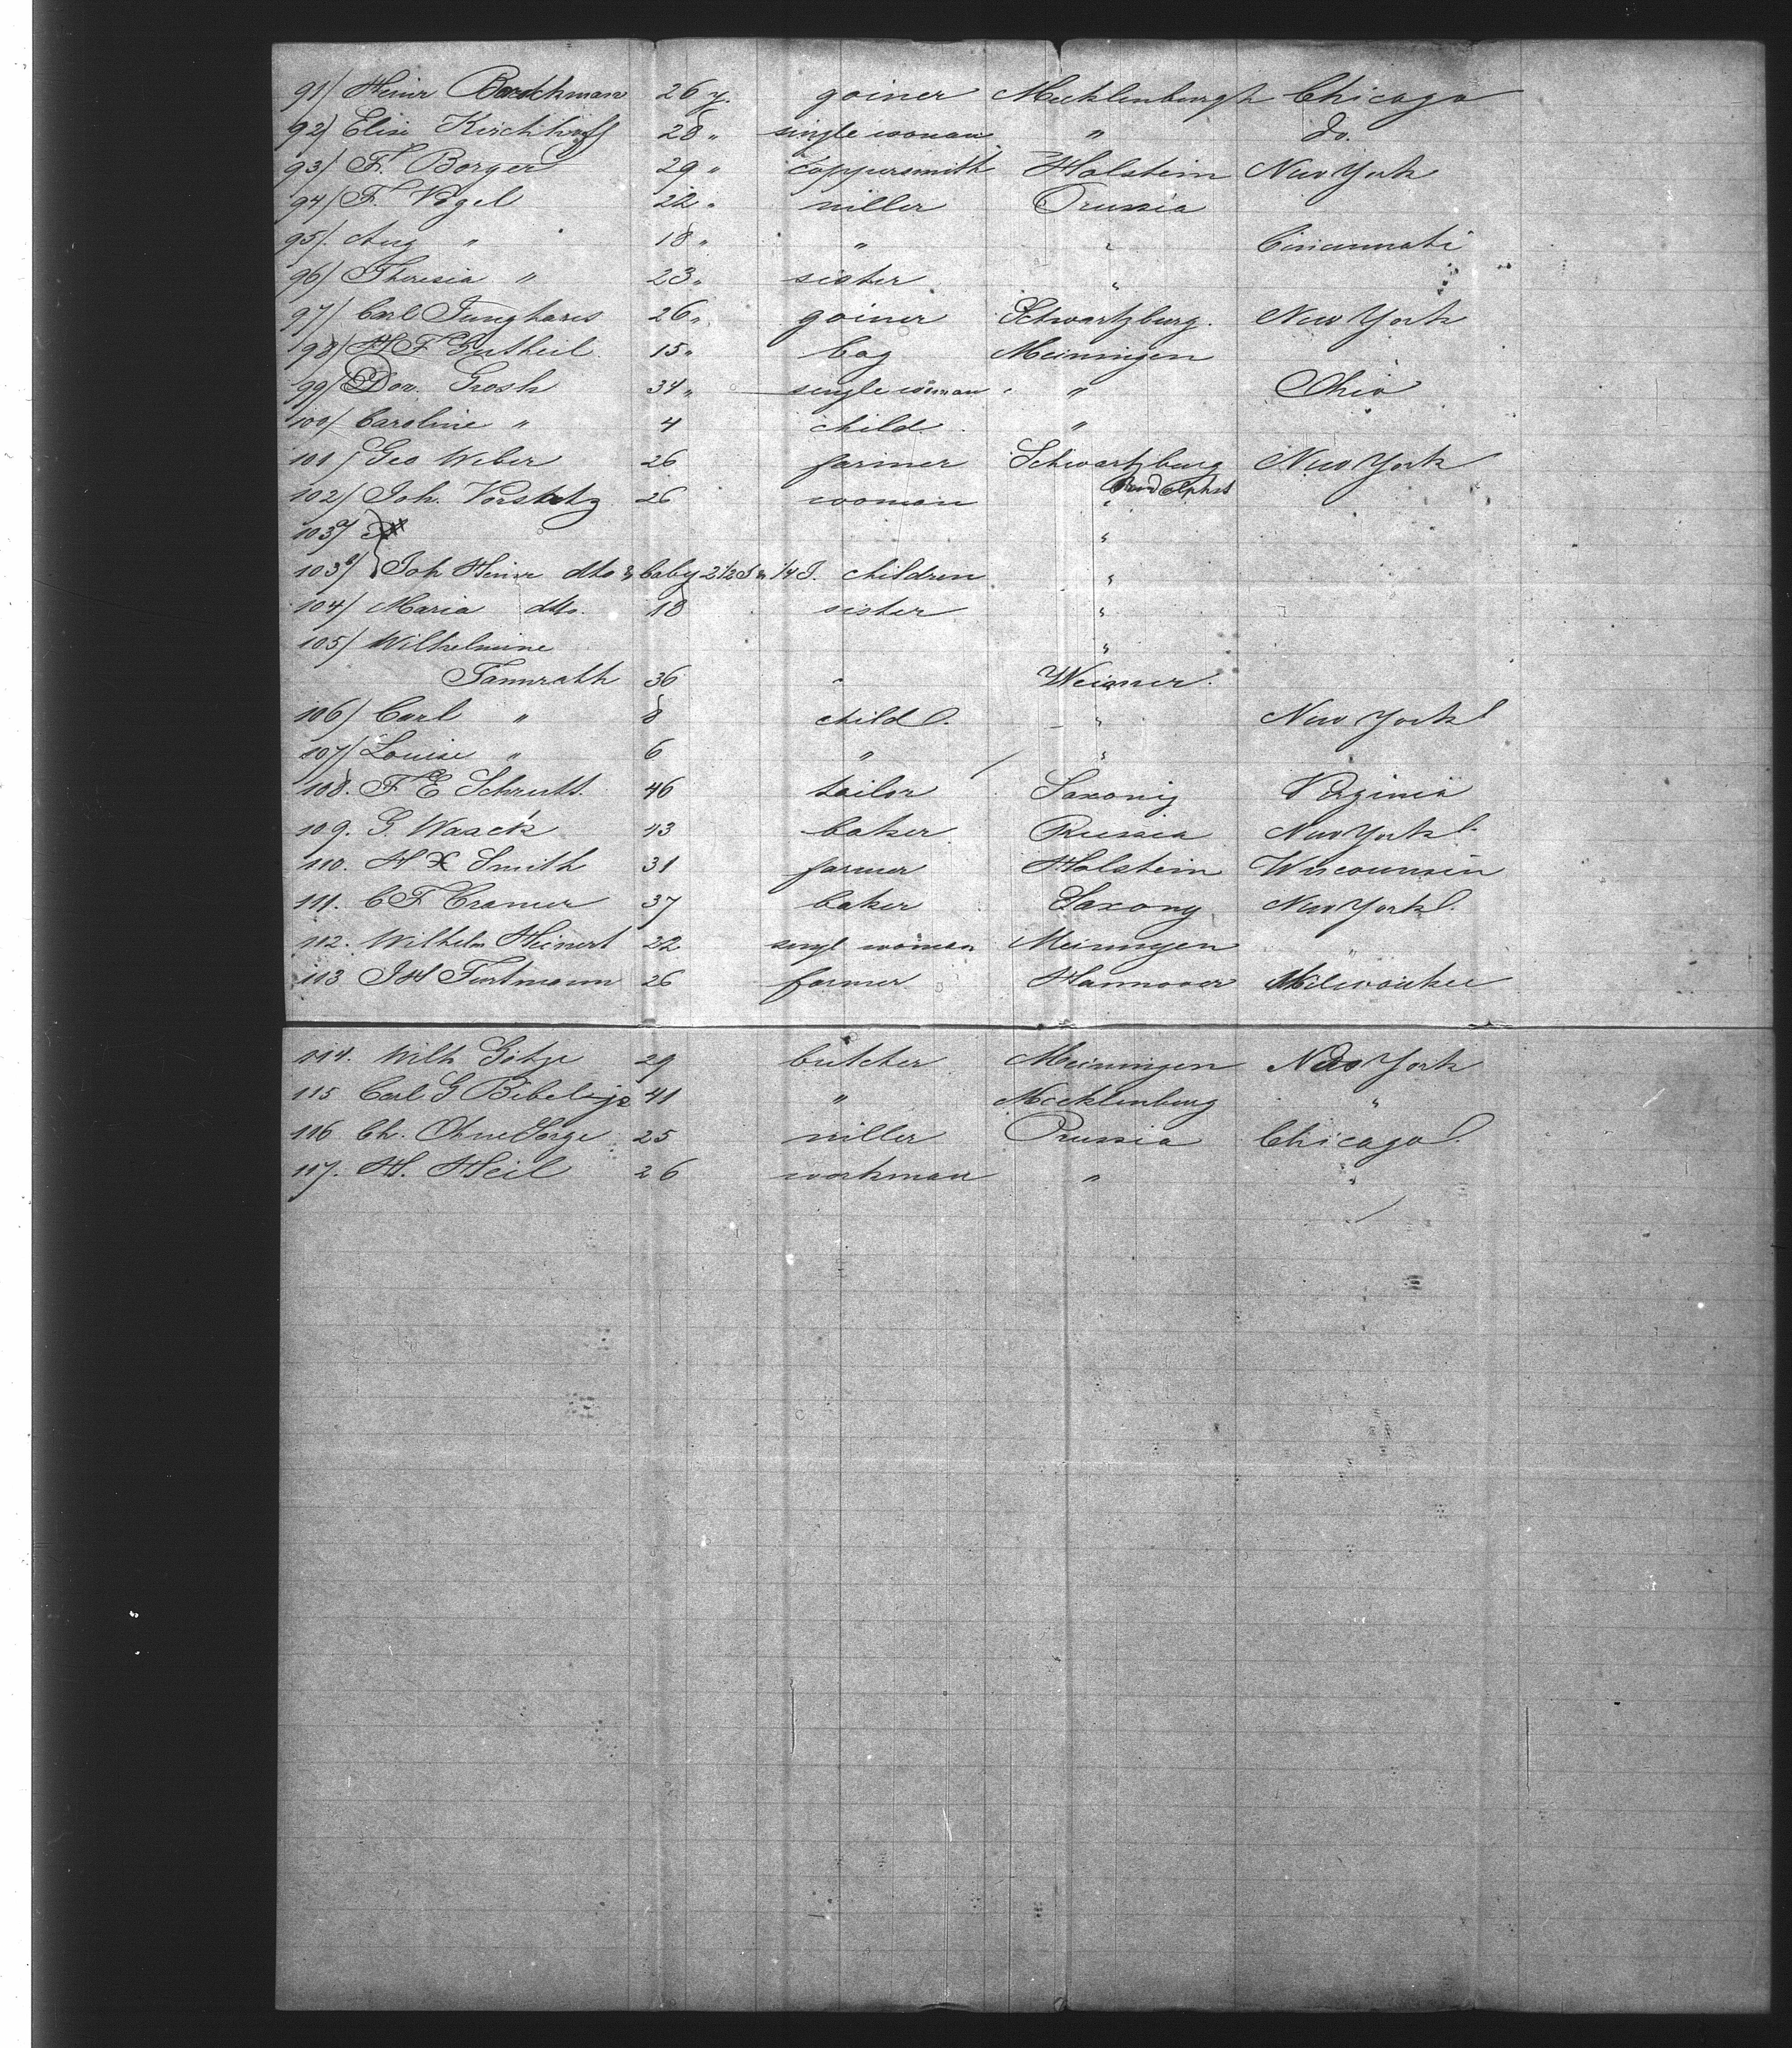 91/ Heinr Backhman 26 y. goiner Mecklenburgh Chicago
92/ Elise Kirchhoff 28 " single woman " do.
93/ F. Borger 29 " coppersmith Holstein New York
94/ F. Vogel 22 " miller Prussia
95/. Aug " 18 " " " Cincinnati
96/ Theresia " 23 " sister "
97/ Carl Junghans 26 " goiner Schwartzburg. New York
98/ H F Gutheil 15 " boy Meiningen
99/ Dor. Grosh 34 " single woman " Ohio
100/ Caroline " 4 child "
101/ Geo Weber 26 farmer Schwartzburg New York
102/ Joh. Vorstatz 26 woman Rudolphst "
103a/ "
103b/ Joh Heinr dto & baby 2 1/2 J & 1/4 J. children "
104/ Maria dto. 18 sister "
105/ Wilhelmine "
Tannrath 36 " Weimer.
106/ Carl " 8 child. " New York
107/ Louise " 6 " "
108. F E Schrutt 46 tailor Saxony Virginia
109. G. Waack 43 baker Prussia New York.
110. H Smith 31 farmer Holstein Wisconnsin
111. C F Cramer 37 baker Saxony New York.
112. Wilhelm Heinert 22 singl woman Meiningen "
113 J H Furtmann 26 farmer Hannover Milwaukee
114. Wilh Götze 29 butcher Meiningen New York
115 Carl G Bibelje 41 " Mecklenburg "
116 Chr. OhneSorge 25 miller Prussia Chicago.
117. H. Heil 26 workman " "